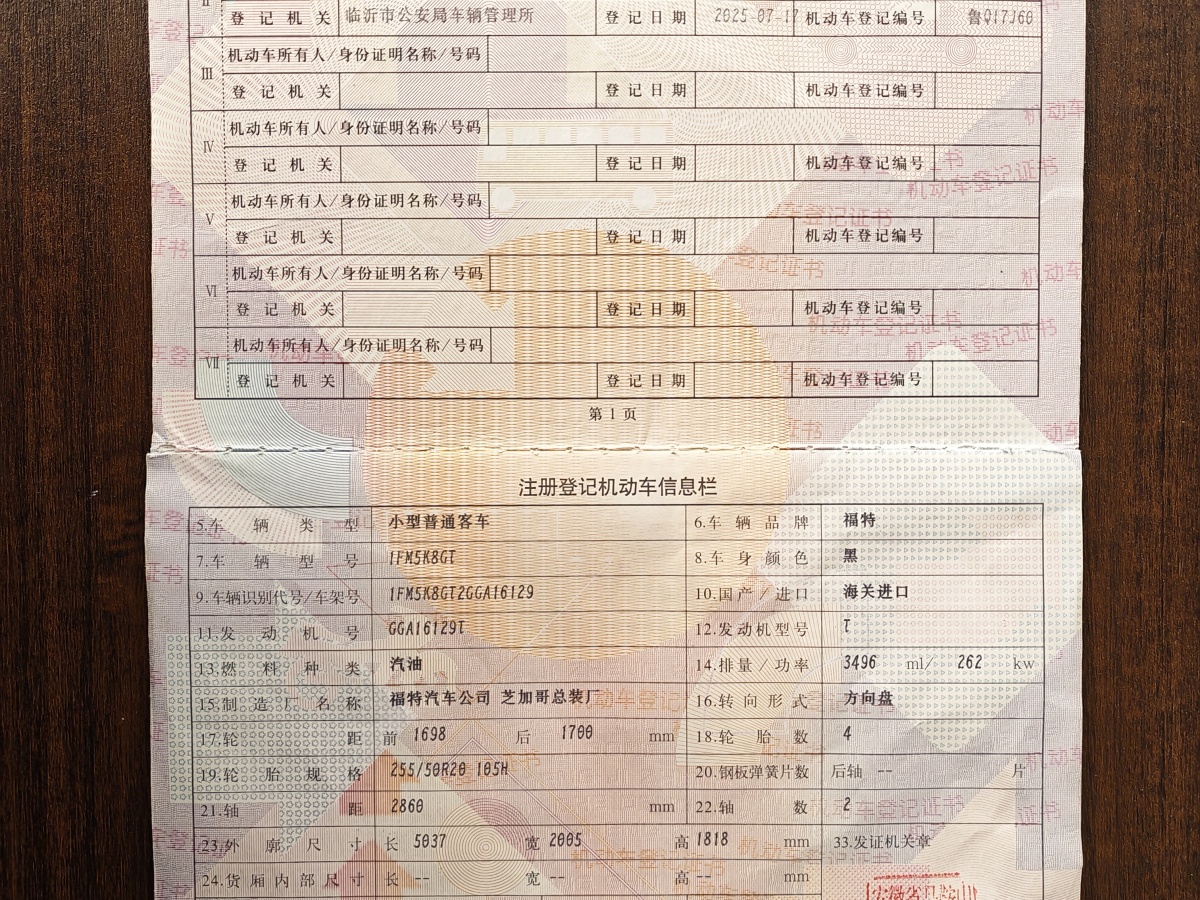 Ⅱ 登记机关 临沂市公安局车辆管理所 登记日期 2025-07-17 机动车登记编号 鲁Q17J60
机动车所有人/身份证明名称/号码
Ⅲ 登记机关 登记日期 机动车登记编号
机动车所有人/身份证明名称/号码
Ⅳ 登记机关 登记日期 机动车登记编号
机动车所有人/身份证明名称/号码
Ⅴ 登记机关 登记日期 机动车登记编号
机动车所有人/身份证明名称/号码
Ⅵ 登记机关 登记日期 机动车登记编号
机动车所有人/身份证明名称/号码
Ⅶ 登记机关 登记日期 机动车登记编号
第 1 页
注册登记机动车信息栏
5.车辆类型 小型普通客车 6.车辆品牌 福特
7.车辆型号 1FM5K8GT 8.车身颜色 黑
9.车辆识别代号/车架号 1FM5K8GT2GGA16129 10.国产/进口 海关进口
11.发动机号 GGA16129T 12.发动机型号 T
13.燃料种类 汽油 14.排量/功率 3496 ml/ 262 kw
15.制造厂名称 福特汽车公司 芝加哥总装厂 16.转向形式 方向盘
17.轮距 前 1698 后 1700 mm 18.轮胎数 4
19.轮胎规格 255/50R20 105H 20.钢板弹簧片数 后轴 -- 片
21.轴距 2860 mm 22.轴数 2
23.外廓尺寸 长 5037 宽 2005 高 1818 mm 33.发证机关章
24.货厢内部尺寸 长 -- 宽 -- 高 -- mm
安徽省马鞍山